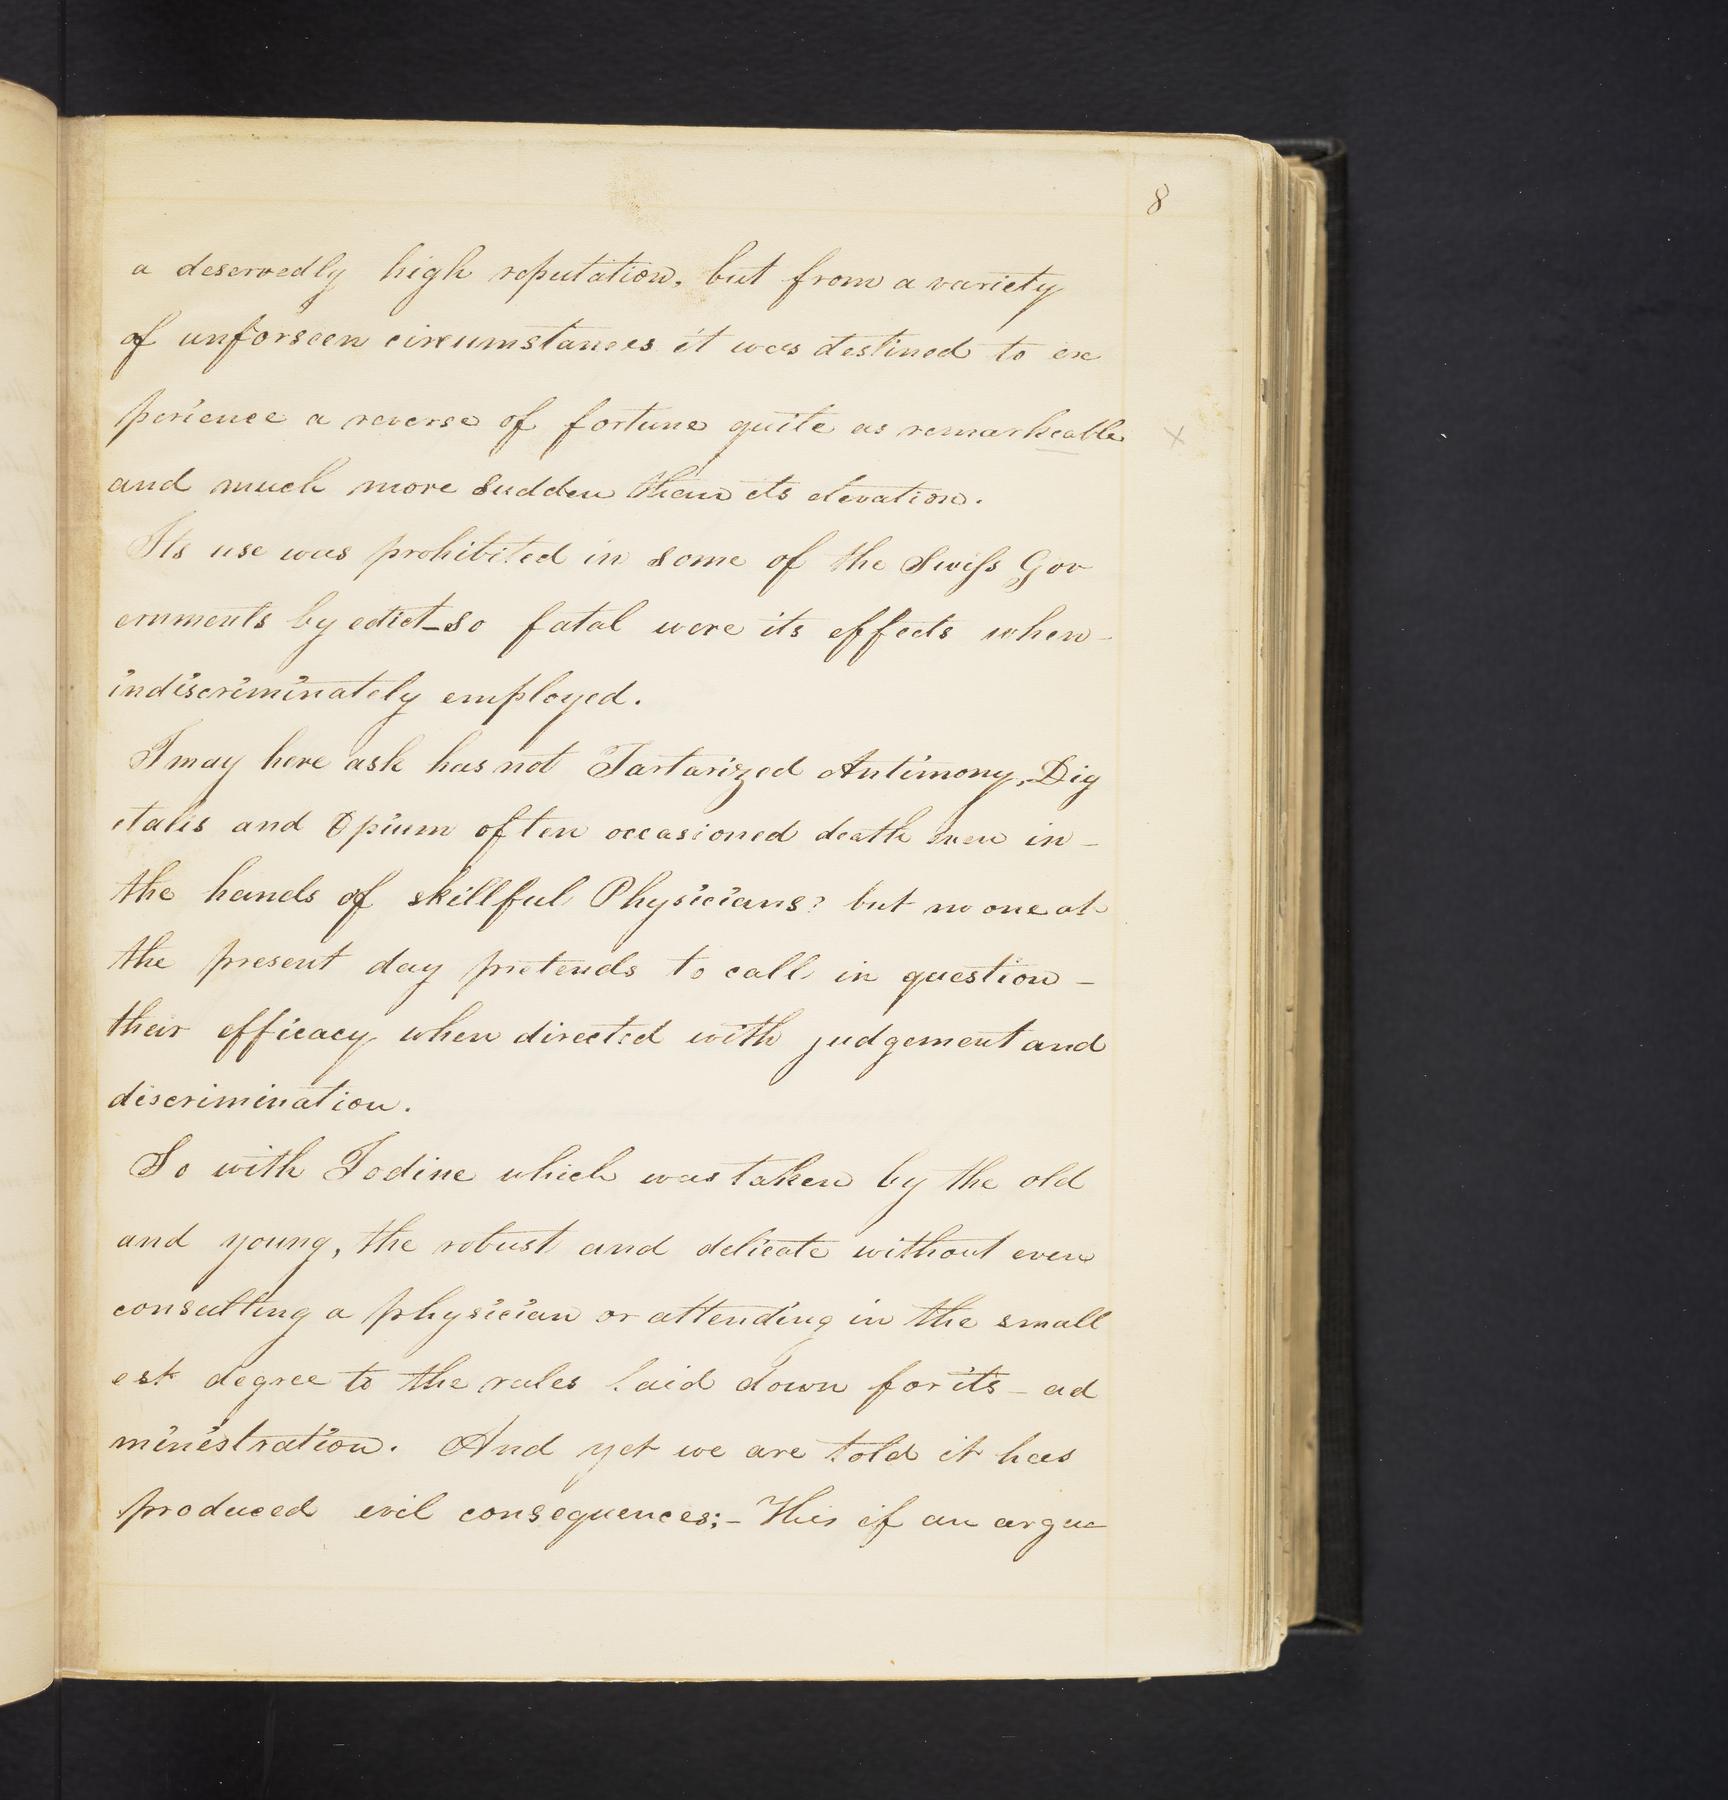 8
a deservedly high reputation, but from a variety
of unforseen circumstances it was destined to ex
perience a reverse of fortune quite as remarkeable x
and much more sudden than its elevation.
Its use was prohibited in some of the Swiss Gov
ernments by edict_so fatal were its effects when-
indiscriminately employed.
I may here ask has not Tartarized Antimony, Dig
italis and Opium often occasioned death even in-
the hands of skillful Physicians? but no one at
the present day pretends to call in question-
their efficacy when directed with judgement and
discrimination.
So with Iodine which was taken by the old
and young, the robust and delicate without even
consulting a physician or attending in the small
est degree to the rules laid down for its - ad
ministration. And yet we are told it has
produced evil consequences;- This if an argue